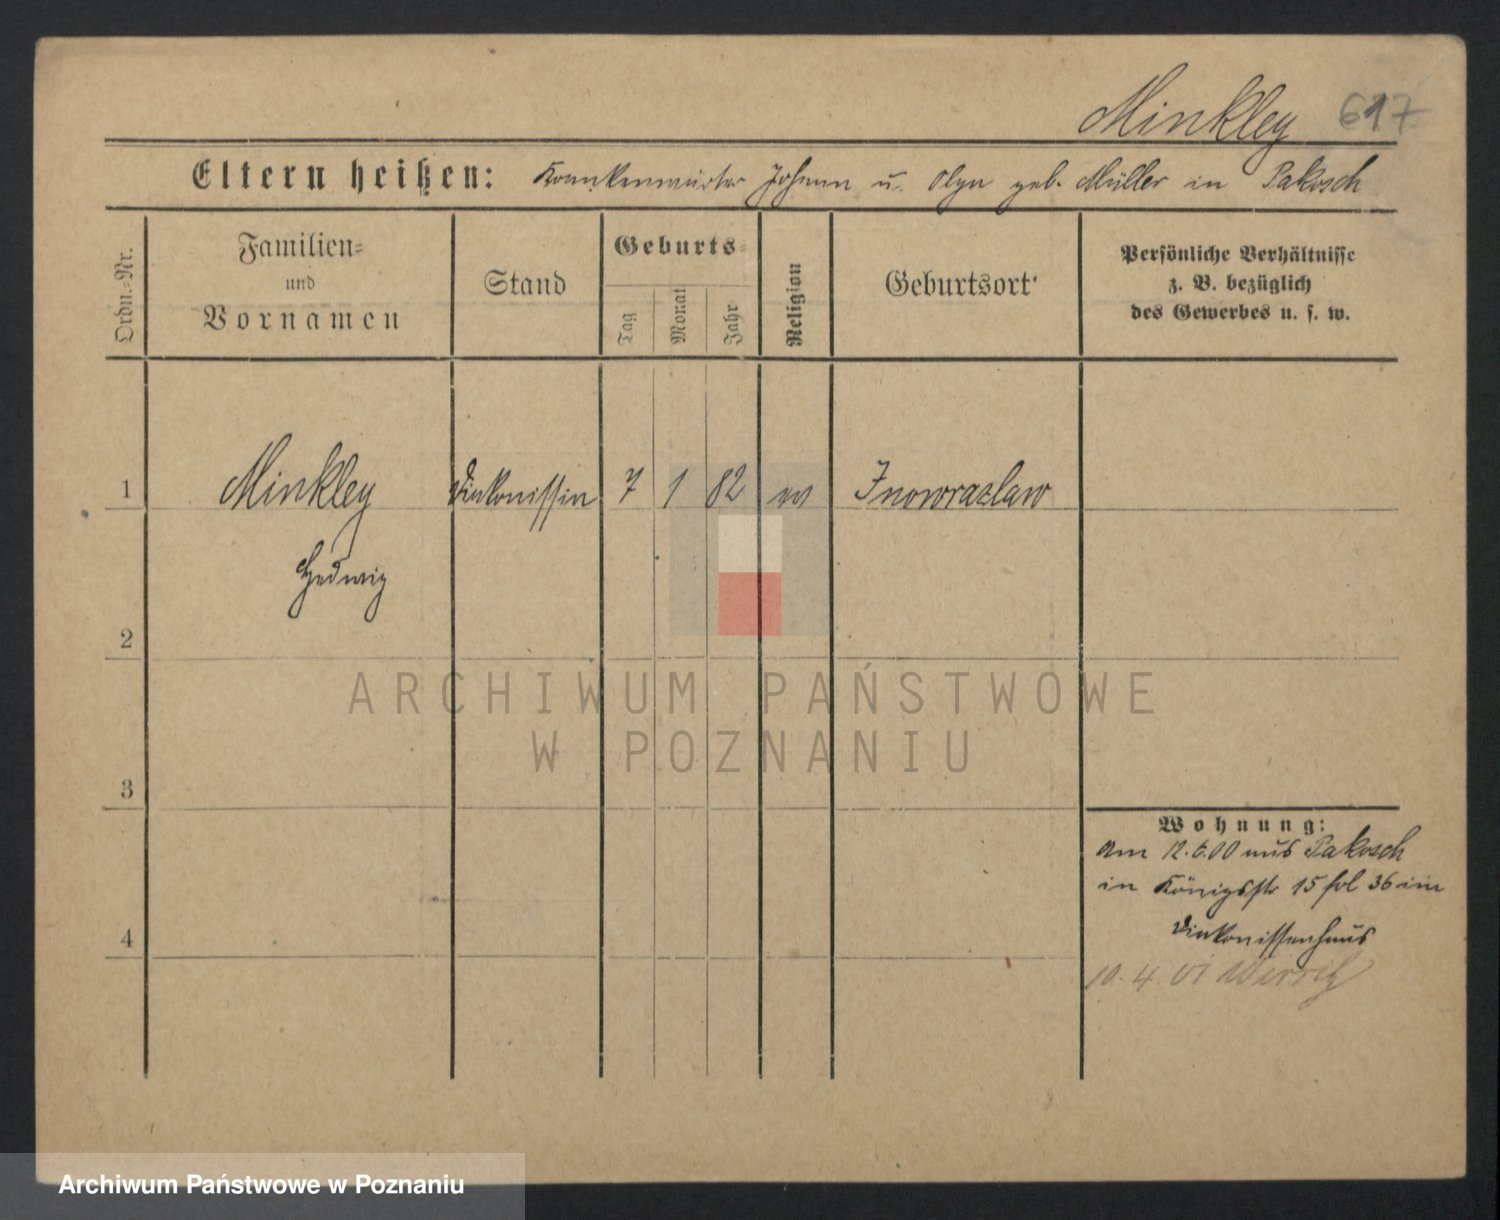 Minkley 617
Eltern heißen: Krankenwärter Johann u. Olga geb. Müller in Pakosch
Ordn.-Nr.
Familien-
und
Vornamen
Stand
Geburts-
Tag
Monat
Jahr
Religion
Geburtsort
Persönliche Verhältnisse
z. B. bezüglich
des Gewerbes u. s. w.
1 Minkley Diakonissin 7 1 82 ev Inowrazlaw
Hedwig
2
ARCHIWUM PAŃSTWOWE
W POZNANIU
3
Wohnung:
am 12.6.00 aus Pakosch
in Königsstr 15 fol 36 im
4 Diakonissenhaus
10. 4 01
Archiwum Państwowe w Poznaniu